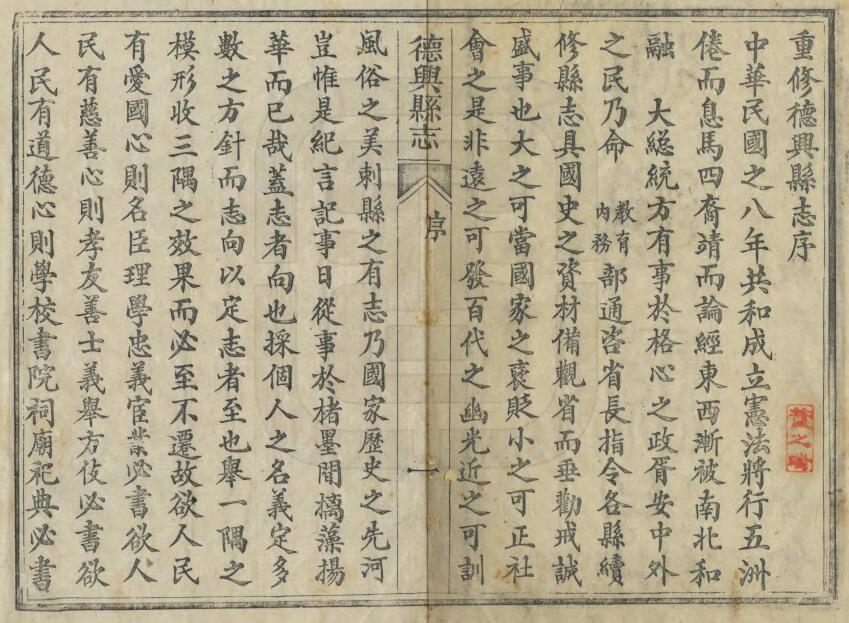 重修德興縣志序
中華民國之八年共和成立憲法將行五洲
倦而息馬四裔靖而論經東西漸被南北和
融　大總統方有事於格心之政胥安中外
之民乃命　教育內務部通咨省長指令各縣續
修縣志具國史之資材備觀省而垂勸戒誠
盛事也大之可當國家之褒貶小之可正社
會之是非遠之可發百代之幽光近之可訓
德興縣志　序　一
風俗之美刺縣之有志乃國家歷史之先河
豈惟是紀言記事日從事於楮墨間摛藻揚
華而已哉蓋志者向也採個人之名義定多
數之方針而志向以定志者至也舉一隅之
模形收三隅之效果而必至不遷故欲人民
有愛國心則名臣理學忠義宦業必書欲人
民有慈善心則孝友善士義舉方伎必書欲
人民有道德心則學校書院祠廟祀典必書